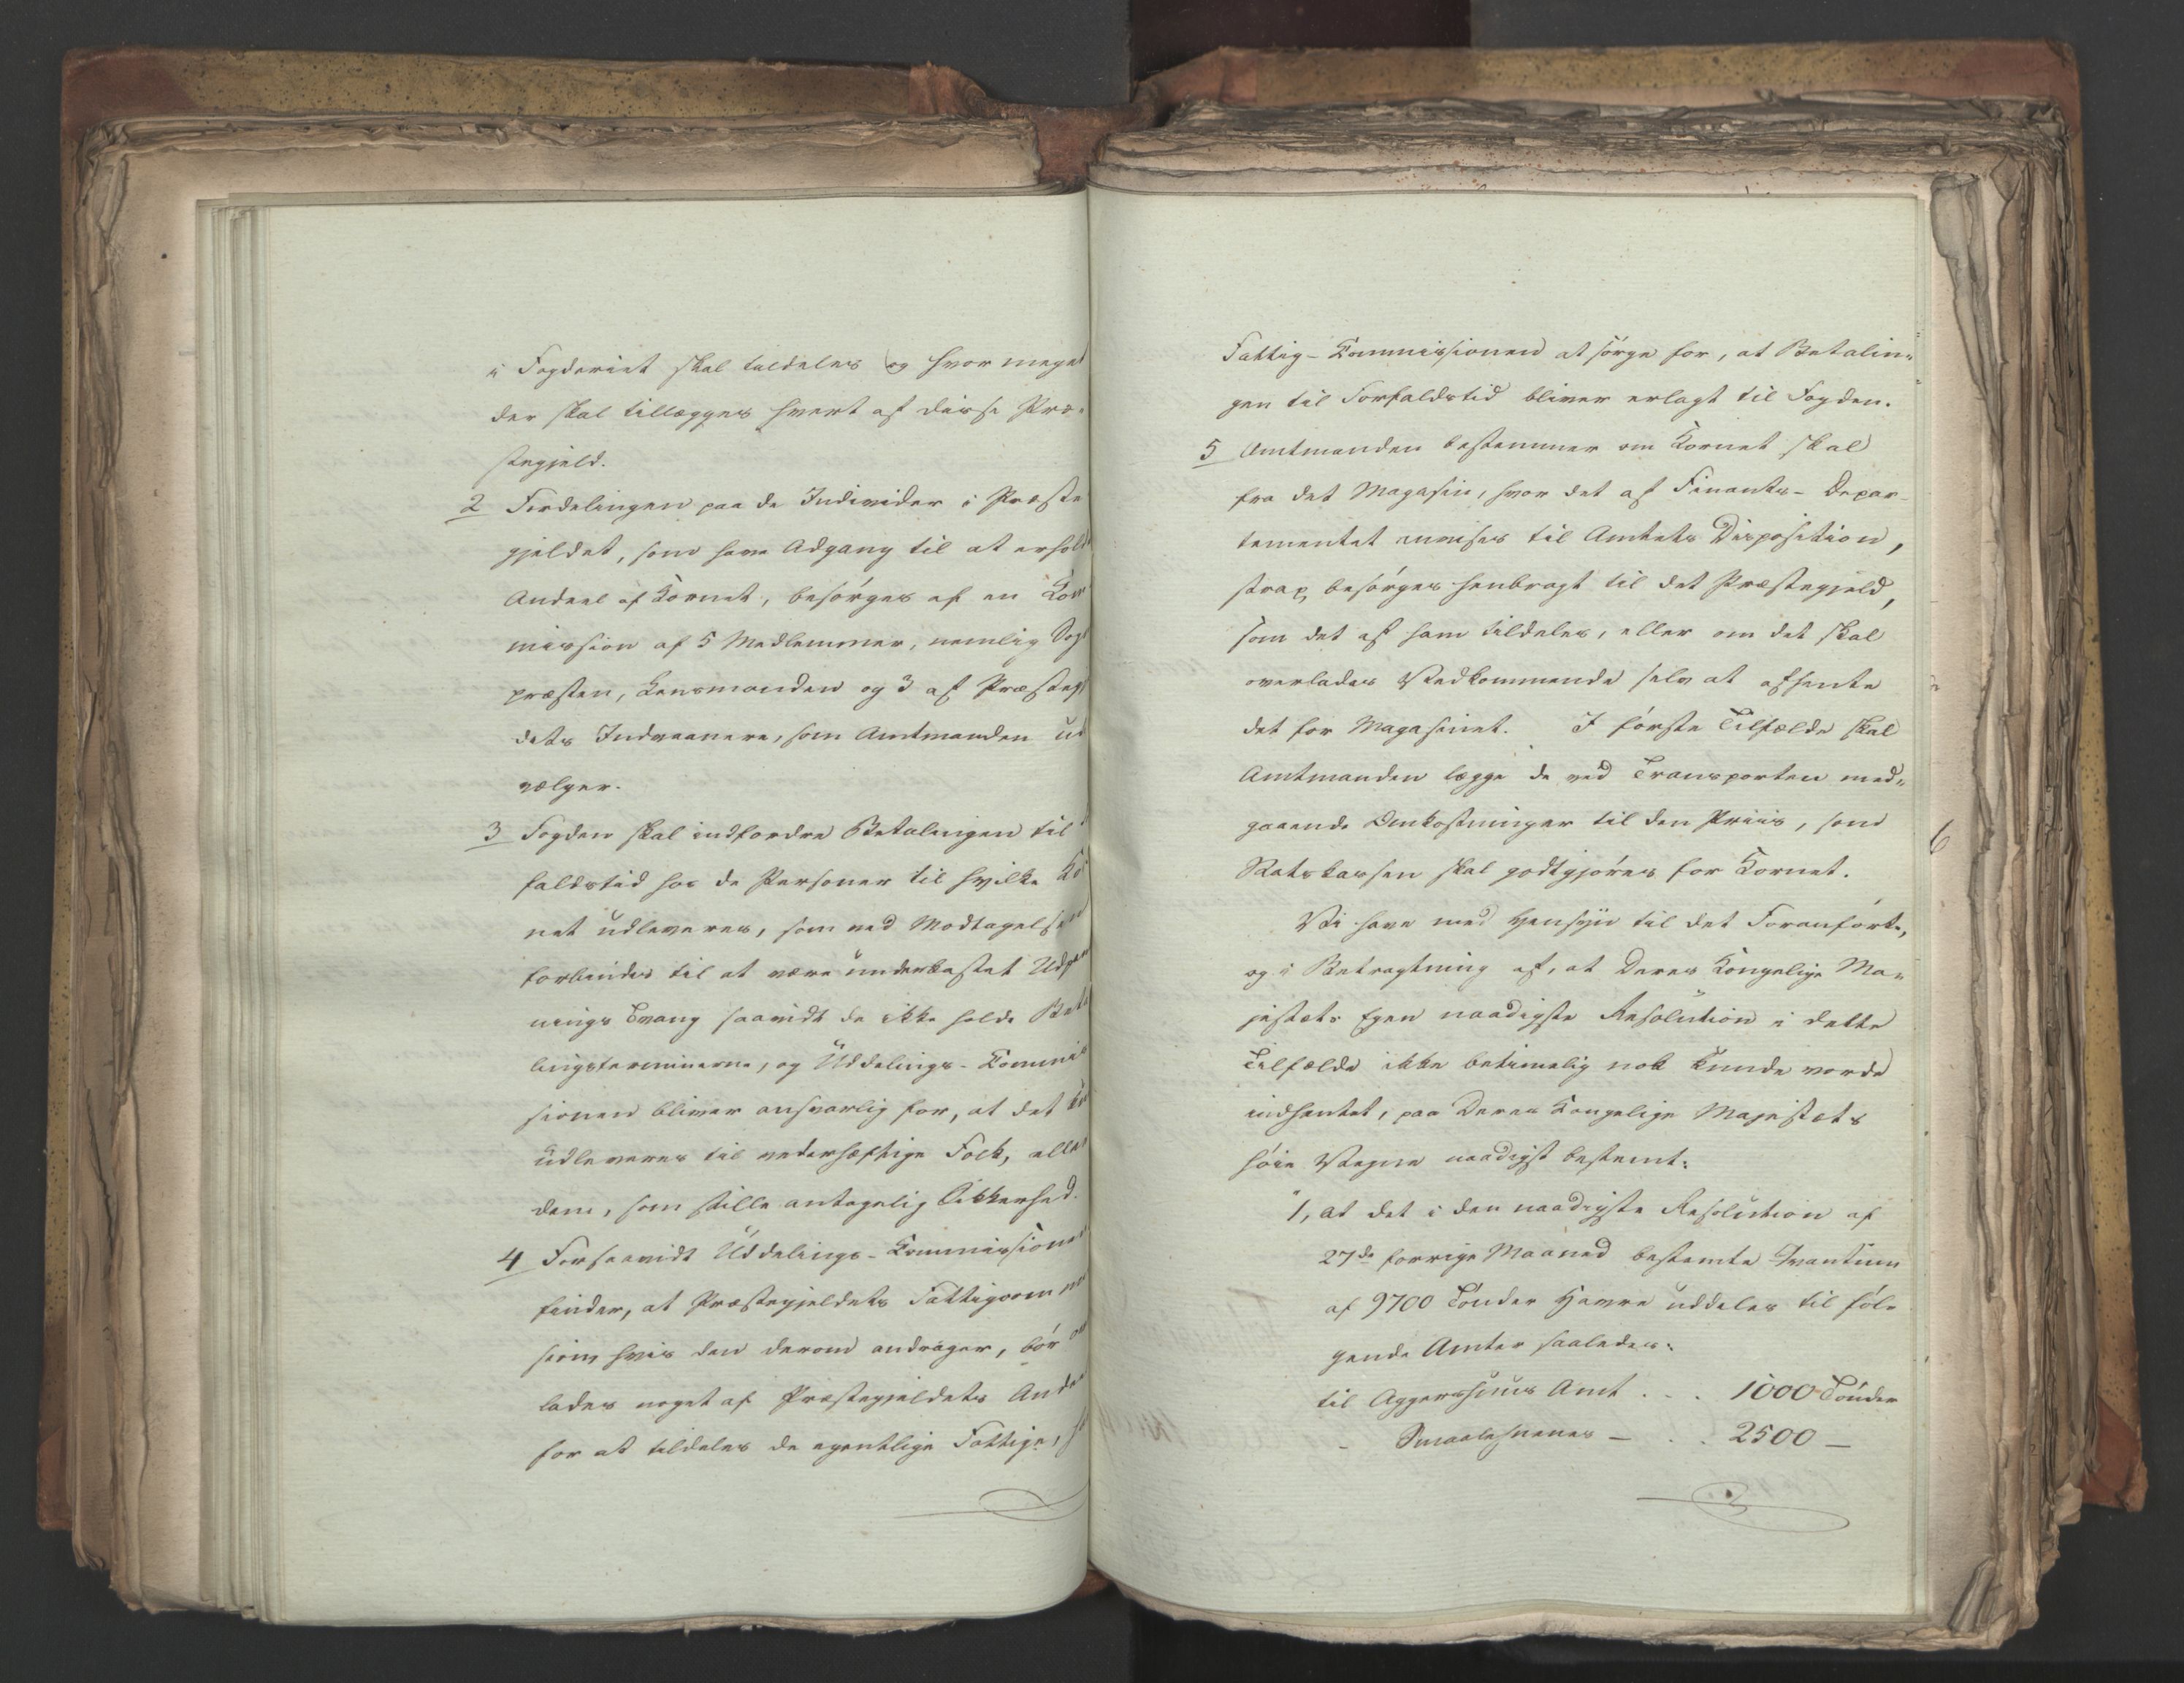 i Fogderiet skal tildeles og hvor meget
der skal tillægges hvert af disse Præ-
stegjeld.
2 Fordelingen paa de Individer i Præste
gjeldet, som have Adgang til at erhold
Andeel af Kornet, besørges af en Kom
mission af 5 Medlemmer, nemlig Sogne
præsten, Lensmanden og 3 af Præstegj
dets Indvaanere, som Amtmanden ud
vælger.
3 Fogden skal indfordre Betalingen til
faldstid hos de Personer til hvilke Ko
net udleveres, som ved Modtagelsen
forbindes til at være underkastet Udpan
nings Tvang saavidt de ikke holde Beta
lingsterminerne, og Uddelings-Kommis
sionen bliver ansvarlig for, at det kun
udleveres til vederhæftige Folk, eller
dem, som stille antagelig Sikkerhed.
4 Forsaavidt Uddelings-Kommissionen
finder, at Præstegjeldets Fattigcommi
sion, hvis den derom andrager, bør over
lades noget af Præstegjeldets Andeel
for at tildeles de egentlige Fattige,
Fattig-Kommissionen at sørge for, at Betalin-
gen til Forfaldstid bliver erlagt til Fogden.
5 Amtmanden bestemmer om Kornet skal
fra det Magasin, hvor det af Finants-Depar-
tementet anvises til Amtets Disposition,
strax besørges henbragt til det Præstegjeld,
som det af ham tildeles, eller om det skal
overlades Vedkommende selv at afhente
det for Magasinet. I første Tilfælde skal
Amtmanden lægge de ved Transporten med-
gaaende Omkostninger til den Priis, som
Statskassen skal godtgjøres for Kornet.
Vi have med Hensyn til det Foranførte,
og i Betragtning af, at Deres Kongelige Ma-
jestæts Egen naadigste Resolution i dette
Tilfælde ikke betimelig nok kunde vorde
indhentet, paa Deres Kongelige Majestæts
høie Vegne naadigst bestemt:
"1, at det i den naadigste Resolution af
27de forrige Maaned bestemte Qvantum
af 9700 Tønder Havre uddeles til føl-
gende Amter saaledes:
til Aggershuus Amt . . . 1000 Tønder
- Smaalehnenes — . . 2500 —